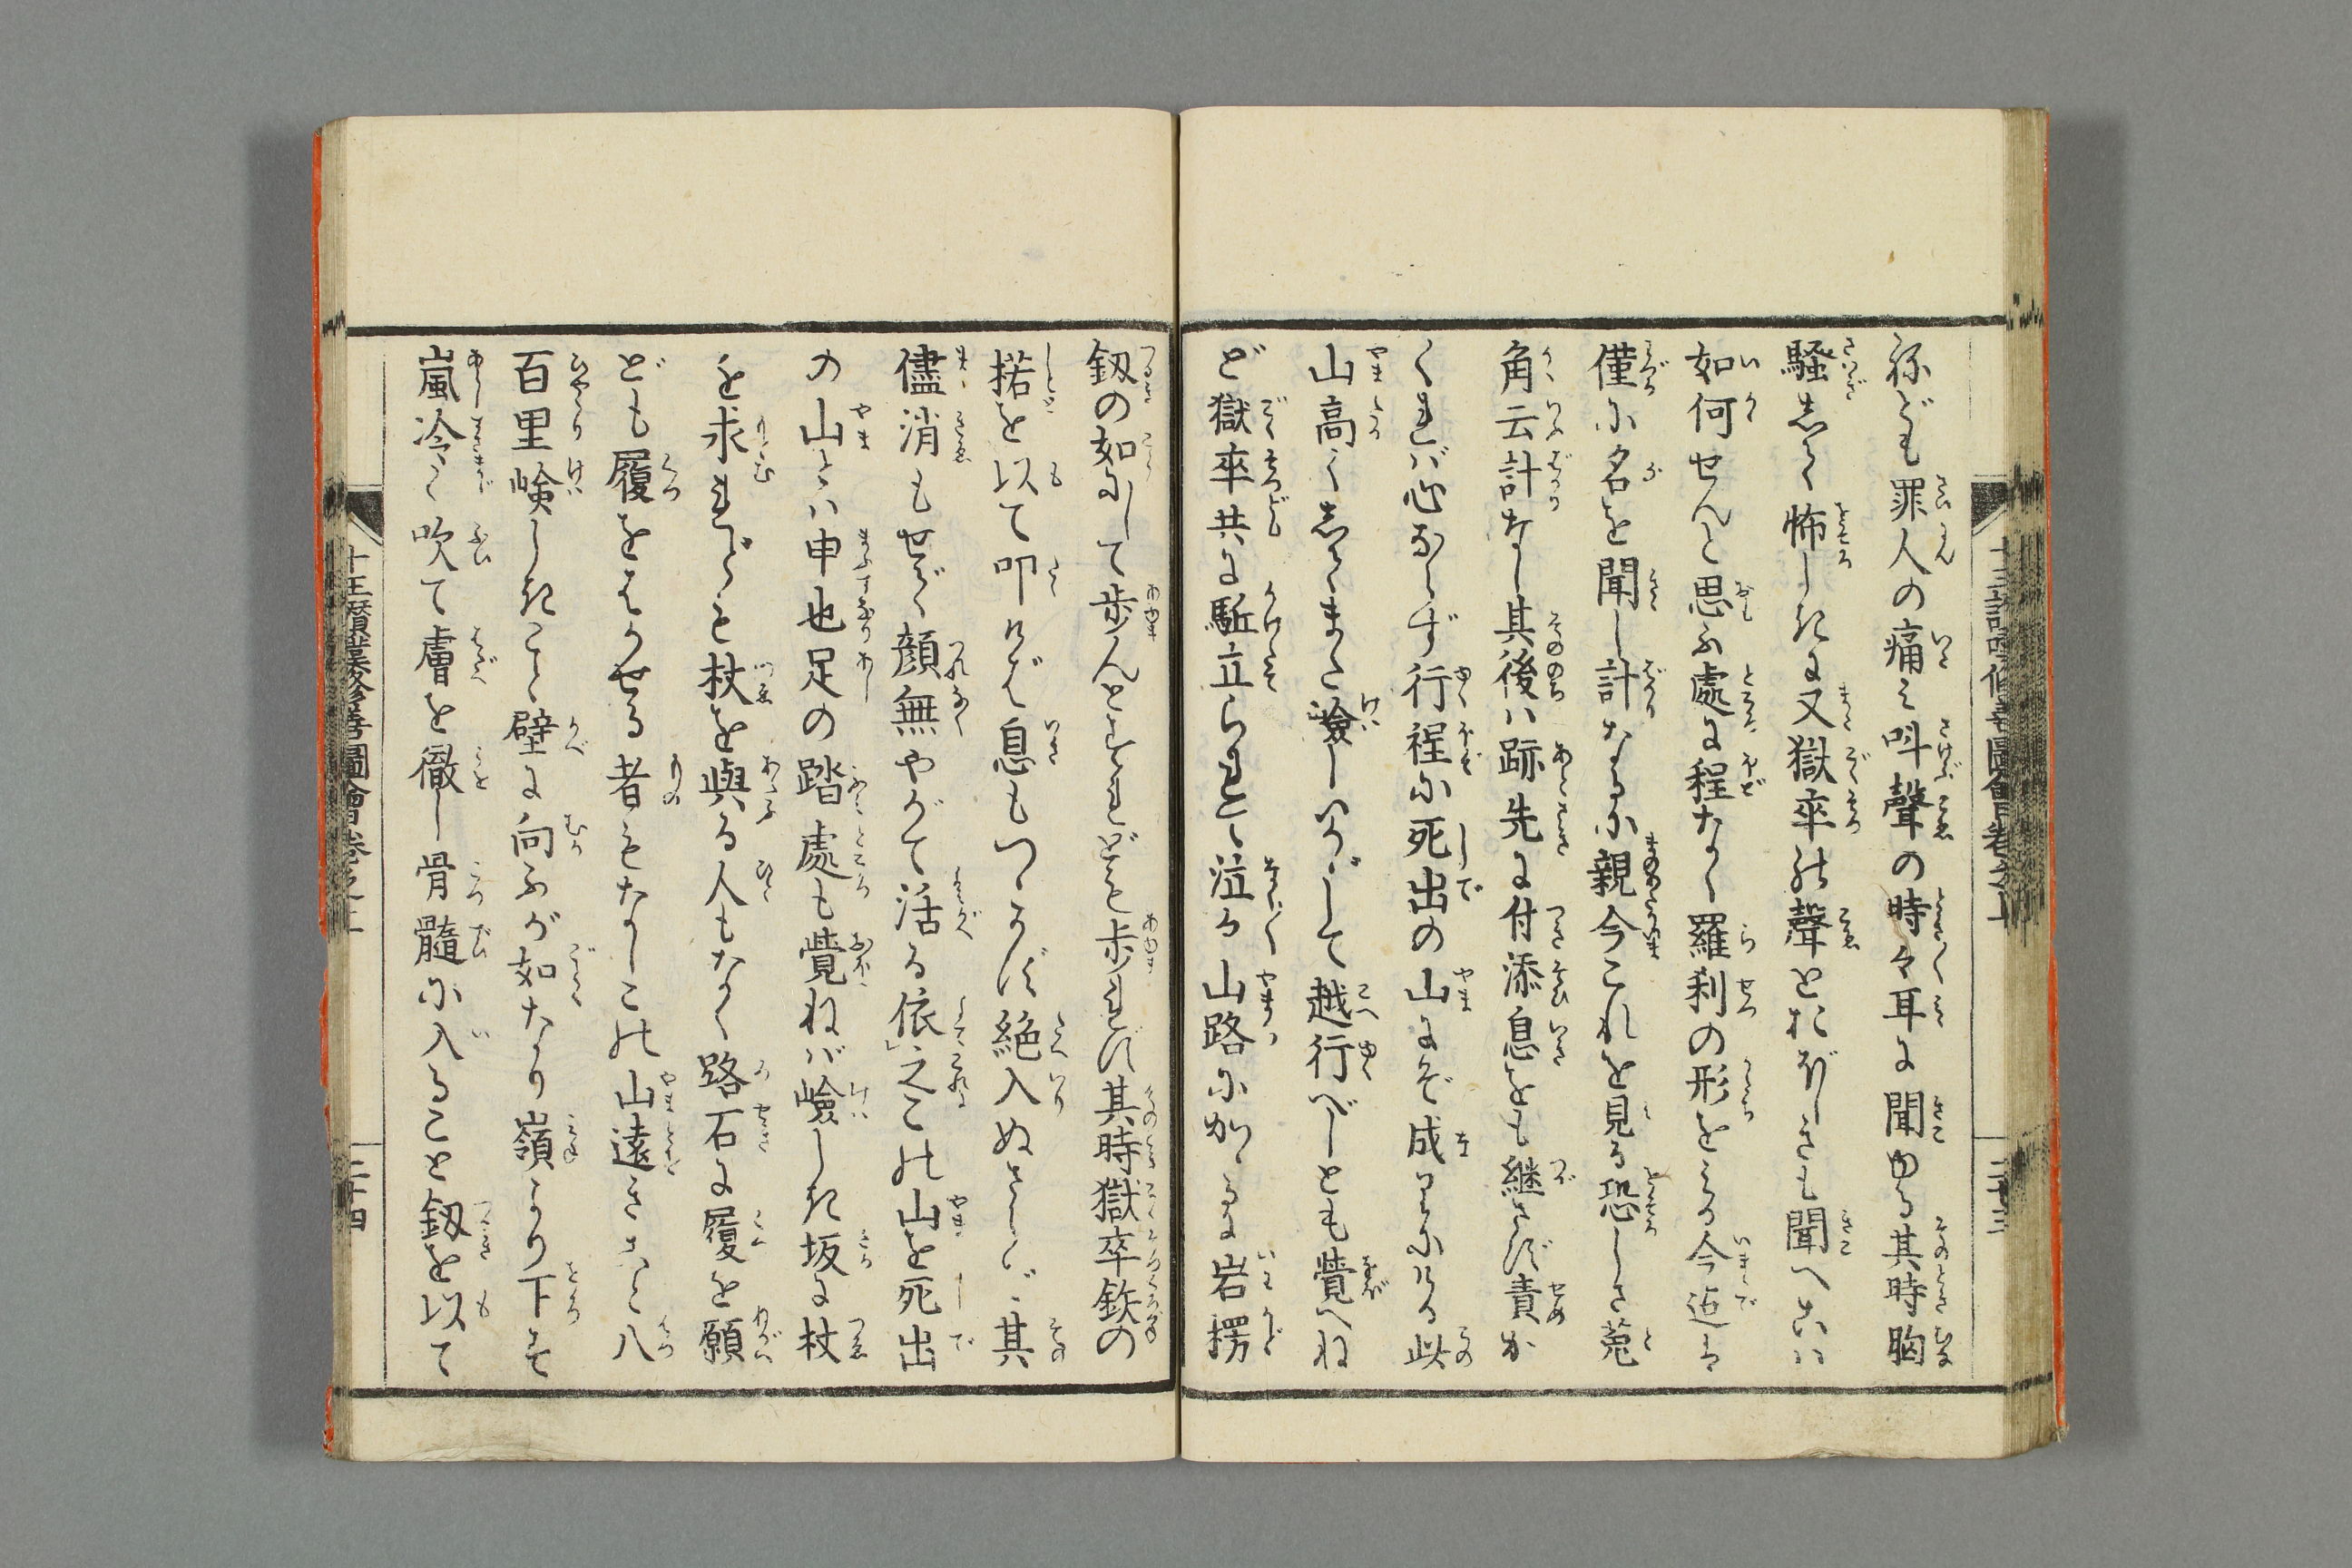 ねども罪人の痛み叫聲の時々耳に聞ゆる其時胸
騒しく怖しきに又獄卒の聲とおぼしきも聞へあは
如何せんと思ふ處に程なく羅刹の形をみる今迄は
僅に名を聞し計なるに親今これを見る恐しさ菟
角云計なし其後は跡先に付添息をも継さず責か
くれば心ならず行程に死出の山にぞ成りにける此
山高くしてまた嶮しいかゞして越行べしとも覺へね
ど獄卒共に駈立られて泣々山路にかゝるに岩楞
釼の如にして歩んとすれども歩れず其時獄卒鉄の
楉を以て叩ければ息もつかず絶入ぬさらば其
儘消もせで顔無やがて活る依之この山を死出
の山とは申也足の踏處も覺ねば嶮しき坂に杖
を求れども杖を與る人もなく路石に履を願
ども履をはかせる者もなしこの山遠きこと八
百里嶮しきこと壁に向ふが如なり嶺より下す
嵐冷く吹て膚を徹し骨髓に入ること釼を以て
十王讃歎修善圖會卷之上
二十四